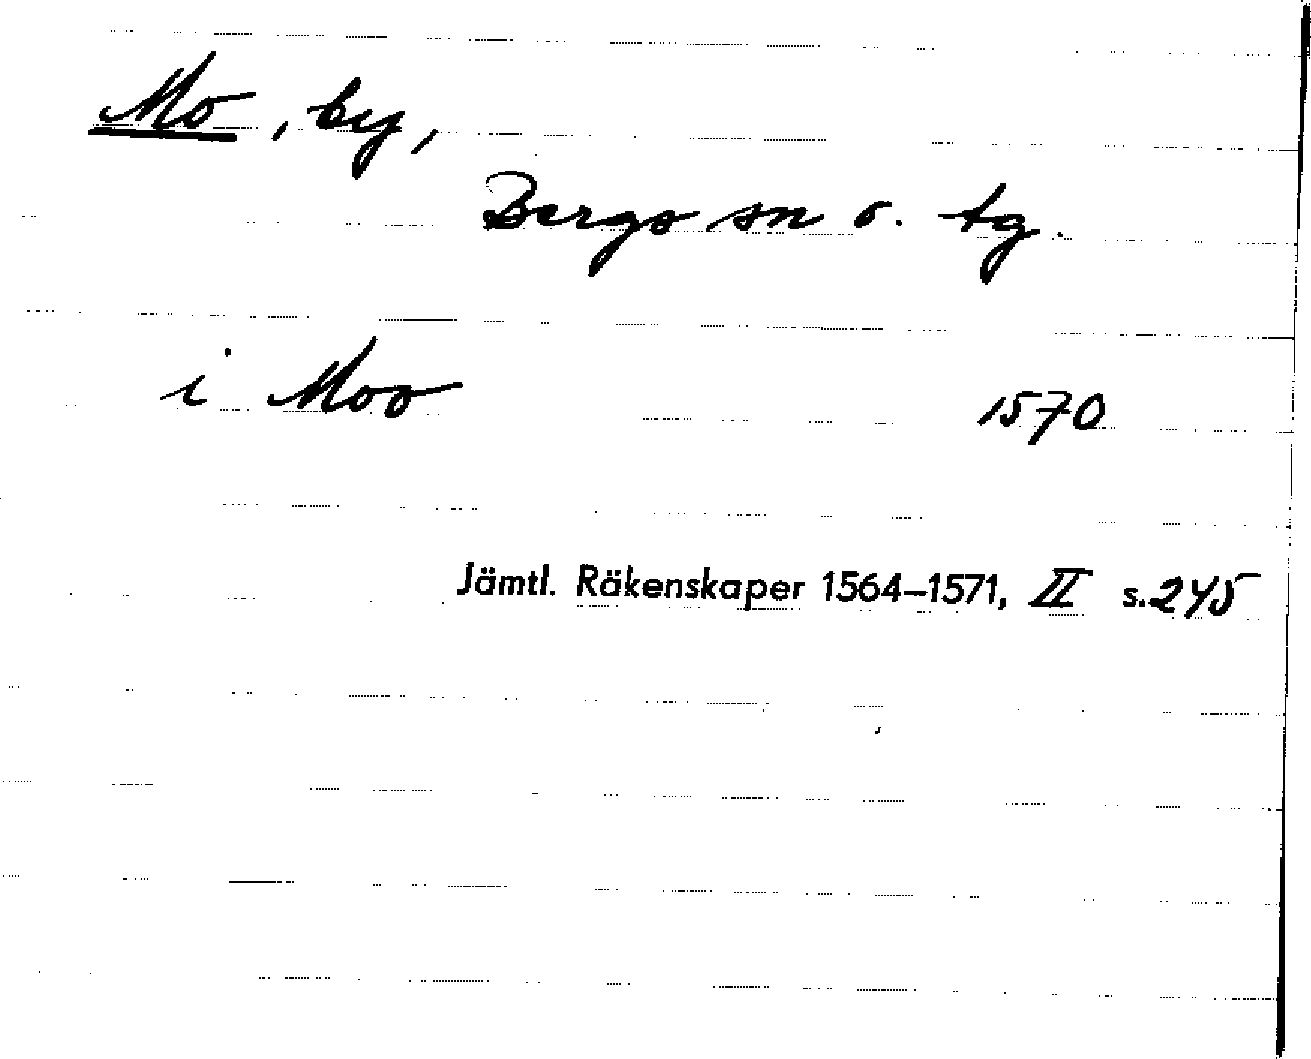 Mo, by,
Bergs sn o. tg.
i Moo 1570
Jämtl. Räkenskaper 1564–1571, II s. 245